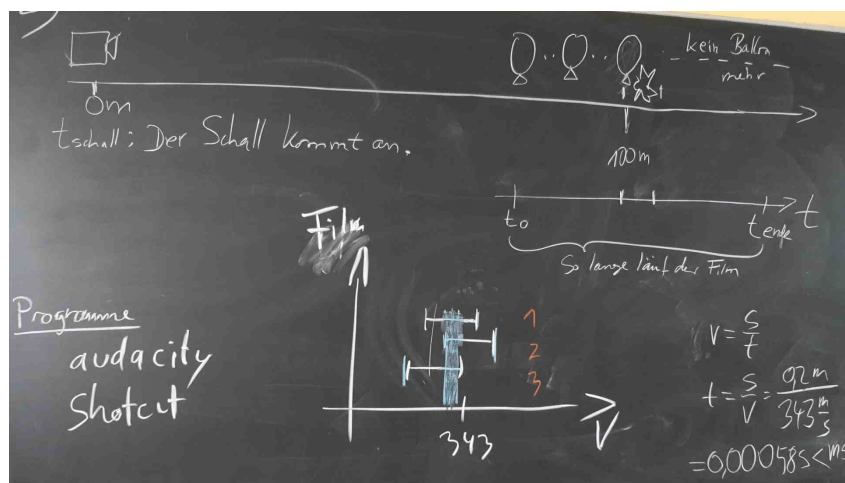 kein Ballon
mehr
0m
100m
tschall: Der Schall kommt an.
t0
tende
t
So lange läuft der Film
Film
Programme
audacity
Shotcut
1
2
3
343
V
v = s/t
t = s/v = 0,2 m / 343 m/s
= 0,00058s < ms